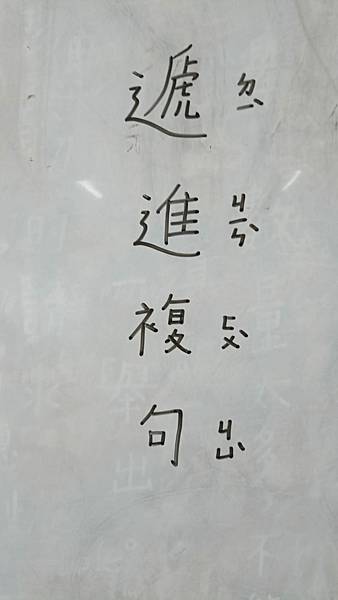 遞進複句
ㄉㄧˋ ㄐㄧㄣˋ ㄈㄨˋ ㄐㄩˋ